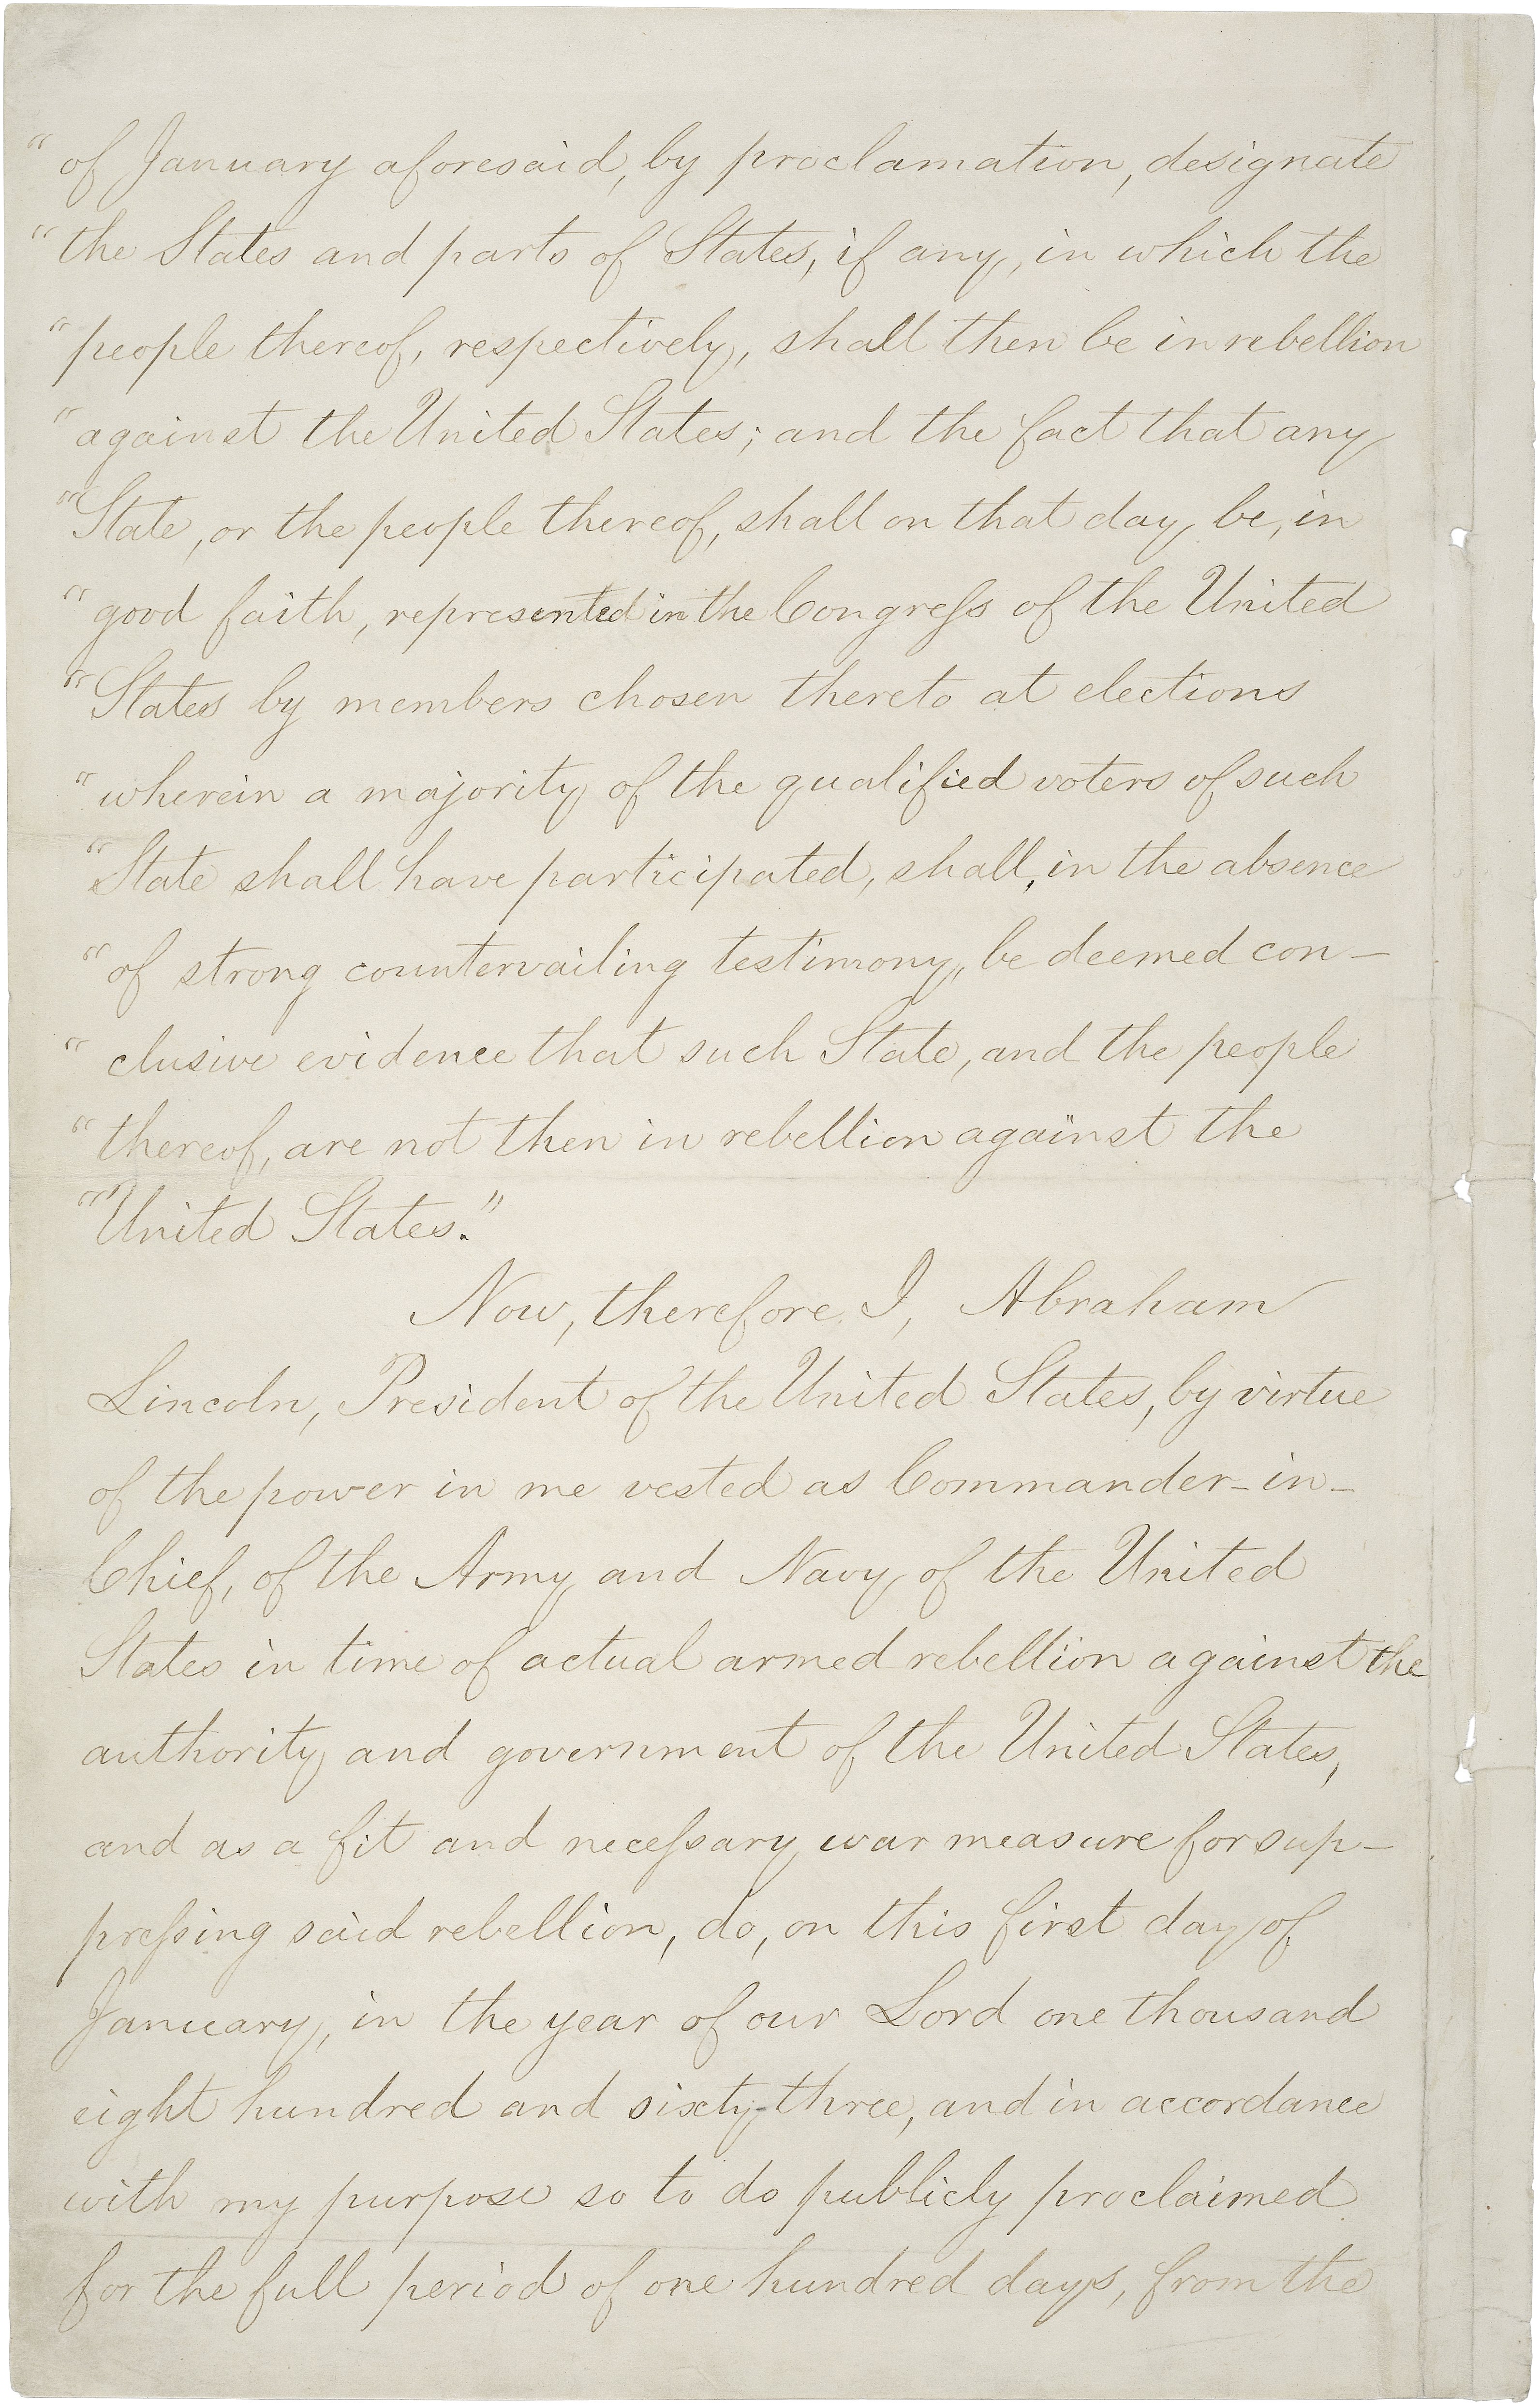 “ of January aforesaid, by proclamation, designate
“ the States and parts of States, if any, in which the
“ people thereof, respectively, shall then be in rebellion
“ against the United States; and the fact that any
“ State, or the people thereof, shall on that day be, in
“ good faith, represented in the Congreſs of the United
“ States by members chosen thereto at elections
“ wherein a majority of the qualified voters of such
“ State shall have participated, shall, in the absence
“ of strong countervailing testimony, be deemed con-
“ clusive evidence that such State, and the people
“ thereof, are not then in rebellion against the
“ United States.”
Now, therefore I, Abraham
Lincoln, President of the United States, by virtue
of the power in me vested as Commander-in-
Chief, of the Army and Navy of the United
States in time of actual armed rebellion against the
authority and government of the United States,
and as a fit and neceſsary war measure for sup-
preſsing said rebellion, do, on this first day of
January, in the year of our Lord one thousand
eight hundred and sixty-three, and in accordance
with my purpose so to do publicly proclaimed
for the full period of one hundred days, from the